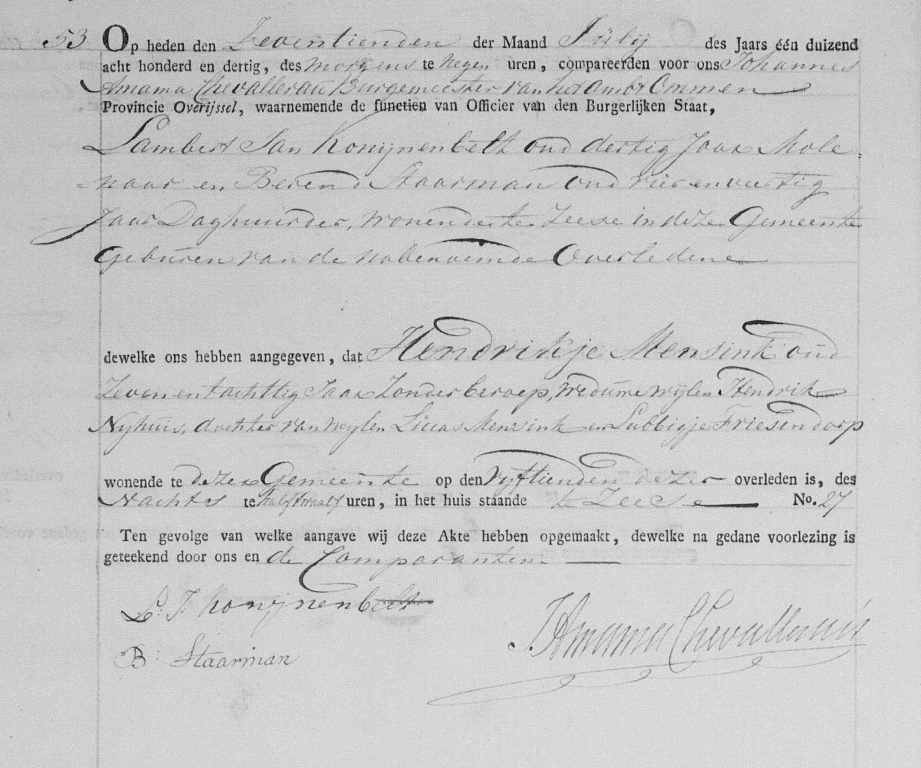 53 Op heden den Zeventienden der Maand Julij des Jaars één duizend
acht honderd en dertig, des morgens te negen uren, compareerden voor ons Johannes
Amama Chevallerau Burgemeester van het Ambt Ommen
Provincie Overijssel, waarnemende de functien van Officier van den Burgerlijken Staat,
Lambert Jan Konijnenbelt oud dertig Jaar Mole-
naar en Berend Staarman oud vier en veertig
Jaar Daghuurder, wonende te Zeese in deze Gemeente
Geburen van de nabenoemde Overledene
dewelke ons hebben aangegeven, dat Hendrikje Mensink oud
Zeven en tachttig Jaar Zonder beroep, weduwe wijlen Hendrik
Nyhuis, dochter van wijlen Lucas Mensink en Lubbigje Friesendorp
wonende te dezer Gemeente op den Vyftienden dezer overleden is, des
Nachts te half twaalf uren, in het huis staande te Zeese No. 27
Ten gevolge van welke aangave wij deze Akte hebben opgemaakt, dewelke na gedane voorlezing is
geteekend door ons en de Comparanten
L. J. Konijnenbelt
J Amama Chevallerau
B: Staarman